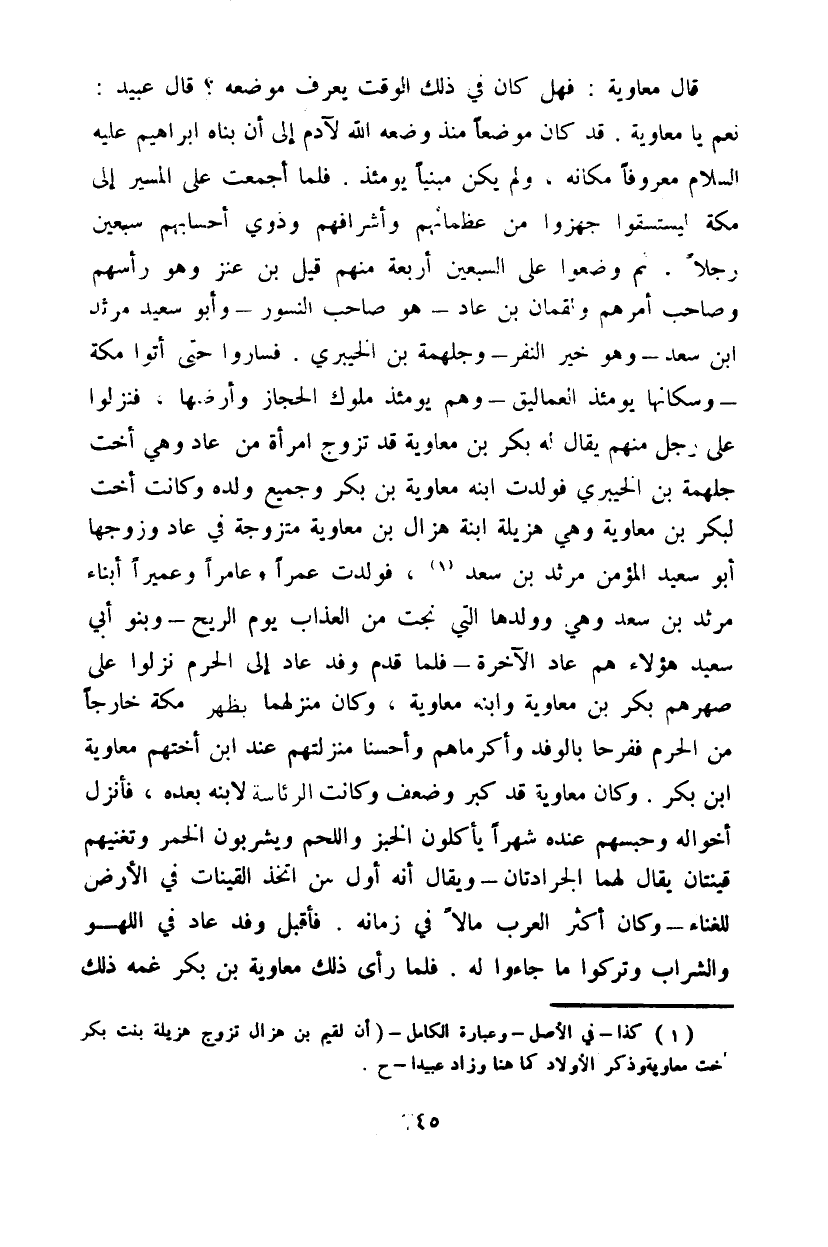 قال معاوية : فهل كان في ذلك الوقت يعرف موضعه ؟ قال عبيد :
نعم يا معاوية . قد كان موضعاً منذ وضعه الله لآدم إلى أن بناه ابراهيم عليه
السلام معروفاً مكانه ، ولم يكن مبنياً يومئذ . فلما أجمعت على المسير إلى
مكة ليستسقوا جهزوا من عظمائهم وأشرافهم وذوي أحسابهم سبعين
رجلاً . ثم وضعوا على السبعين أربعة منهم قيل بن عنز وهو رأسهم
وصاحب أمرهم ولقمان بن عاد – هو صاحب النسور – وأبو سعيد مرثد
ابن سعد – وهو خير النفر – وجلهمة بن الخيبري . فساروا حتى أتوا مكة
– وسكانها يومئذ العماليق – وهم يومئذ ملوك الحجاز وأرضها ، فنزلوا
على رجل منهم يقال له بكر بن معاوية قد تزوج امرأة من عاد وهي أخت
جلهمة بن الخيبري فولدت ابنه معاوية بن بكر وجميع ولده وكانت أخت
لبكر بن معاوية وهي هزيلة ابنة هزال بن معاوية متزوجة في عاد وزوجها
أبو سعيد المؤمن مرثد بن سعد (١) ، فولدت عمراً وعامراً وعميراً أبناء
مرثد بن سعد وهي وولدها التي نجت من العذاب يوم الريح – وبنو أبي
سعيد هؤلاء هم عاد الآخرة – فلما قدم وفد عاد إلى الحرم نزلوا على
صهرهم بكر بن معاوية وابنه معاوية ، وكان منزلهما بظهر مكة خارجاً
من الحرم ففرحا بالوفد وأكرماهم وأحسنا منزلتهم عند ابن أختهم معاوية
ابن بكر . وكان معاوية قد كبر وضعف وكانت الرئاسة لابنه بعده ، فأنزل
أخواله وحبسهم عنده شهراً يأكلون الخبز واللحم ويشربون الخمر وتغنيهم
قينتان يقال لهما الجرادتان – ويقال أنه أول من اتخذ القينات في الأرض
للغناء – وكان أكثر العرب مالاً في زمانه . فأقبل وفد عاد في اللهـــو
والشراب وتركوا ما جاءوا له . فلما رأى ذلك معاوية بن بكر غمه ذلك
(١) كذا – في الأصل – وعبارة الكامل – (أن لقيم بن هزال تزوج هزيلة بنت بكر
أخت معاوية وذكر الأولاد كما هنا وزاد عبيدا – ح .